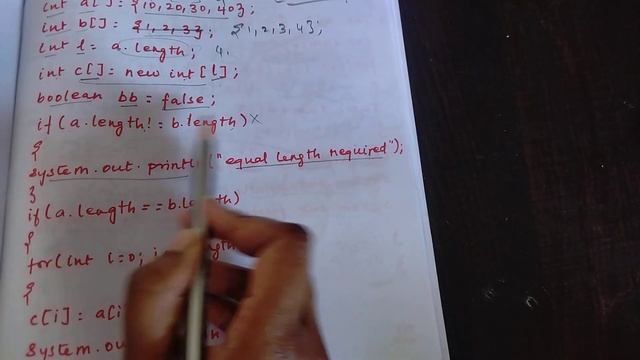 int a[] = {10,20,30,40};
int b[] = {1,2,3}; {1,2,3,4};
int l = a.length; 4.
int c[] = new int[l];
boolean bb = false;
if(a.length! = b.length) ×
{
System.out.println("equal length required");
}
if(a.length == b.length)
{
for(int i=0; i
{
c[i] = a[i
System.ou